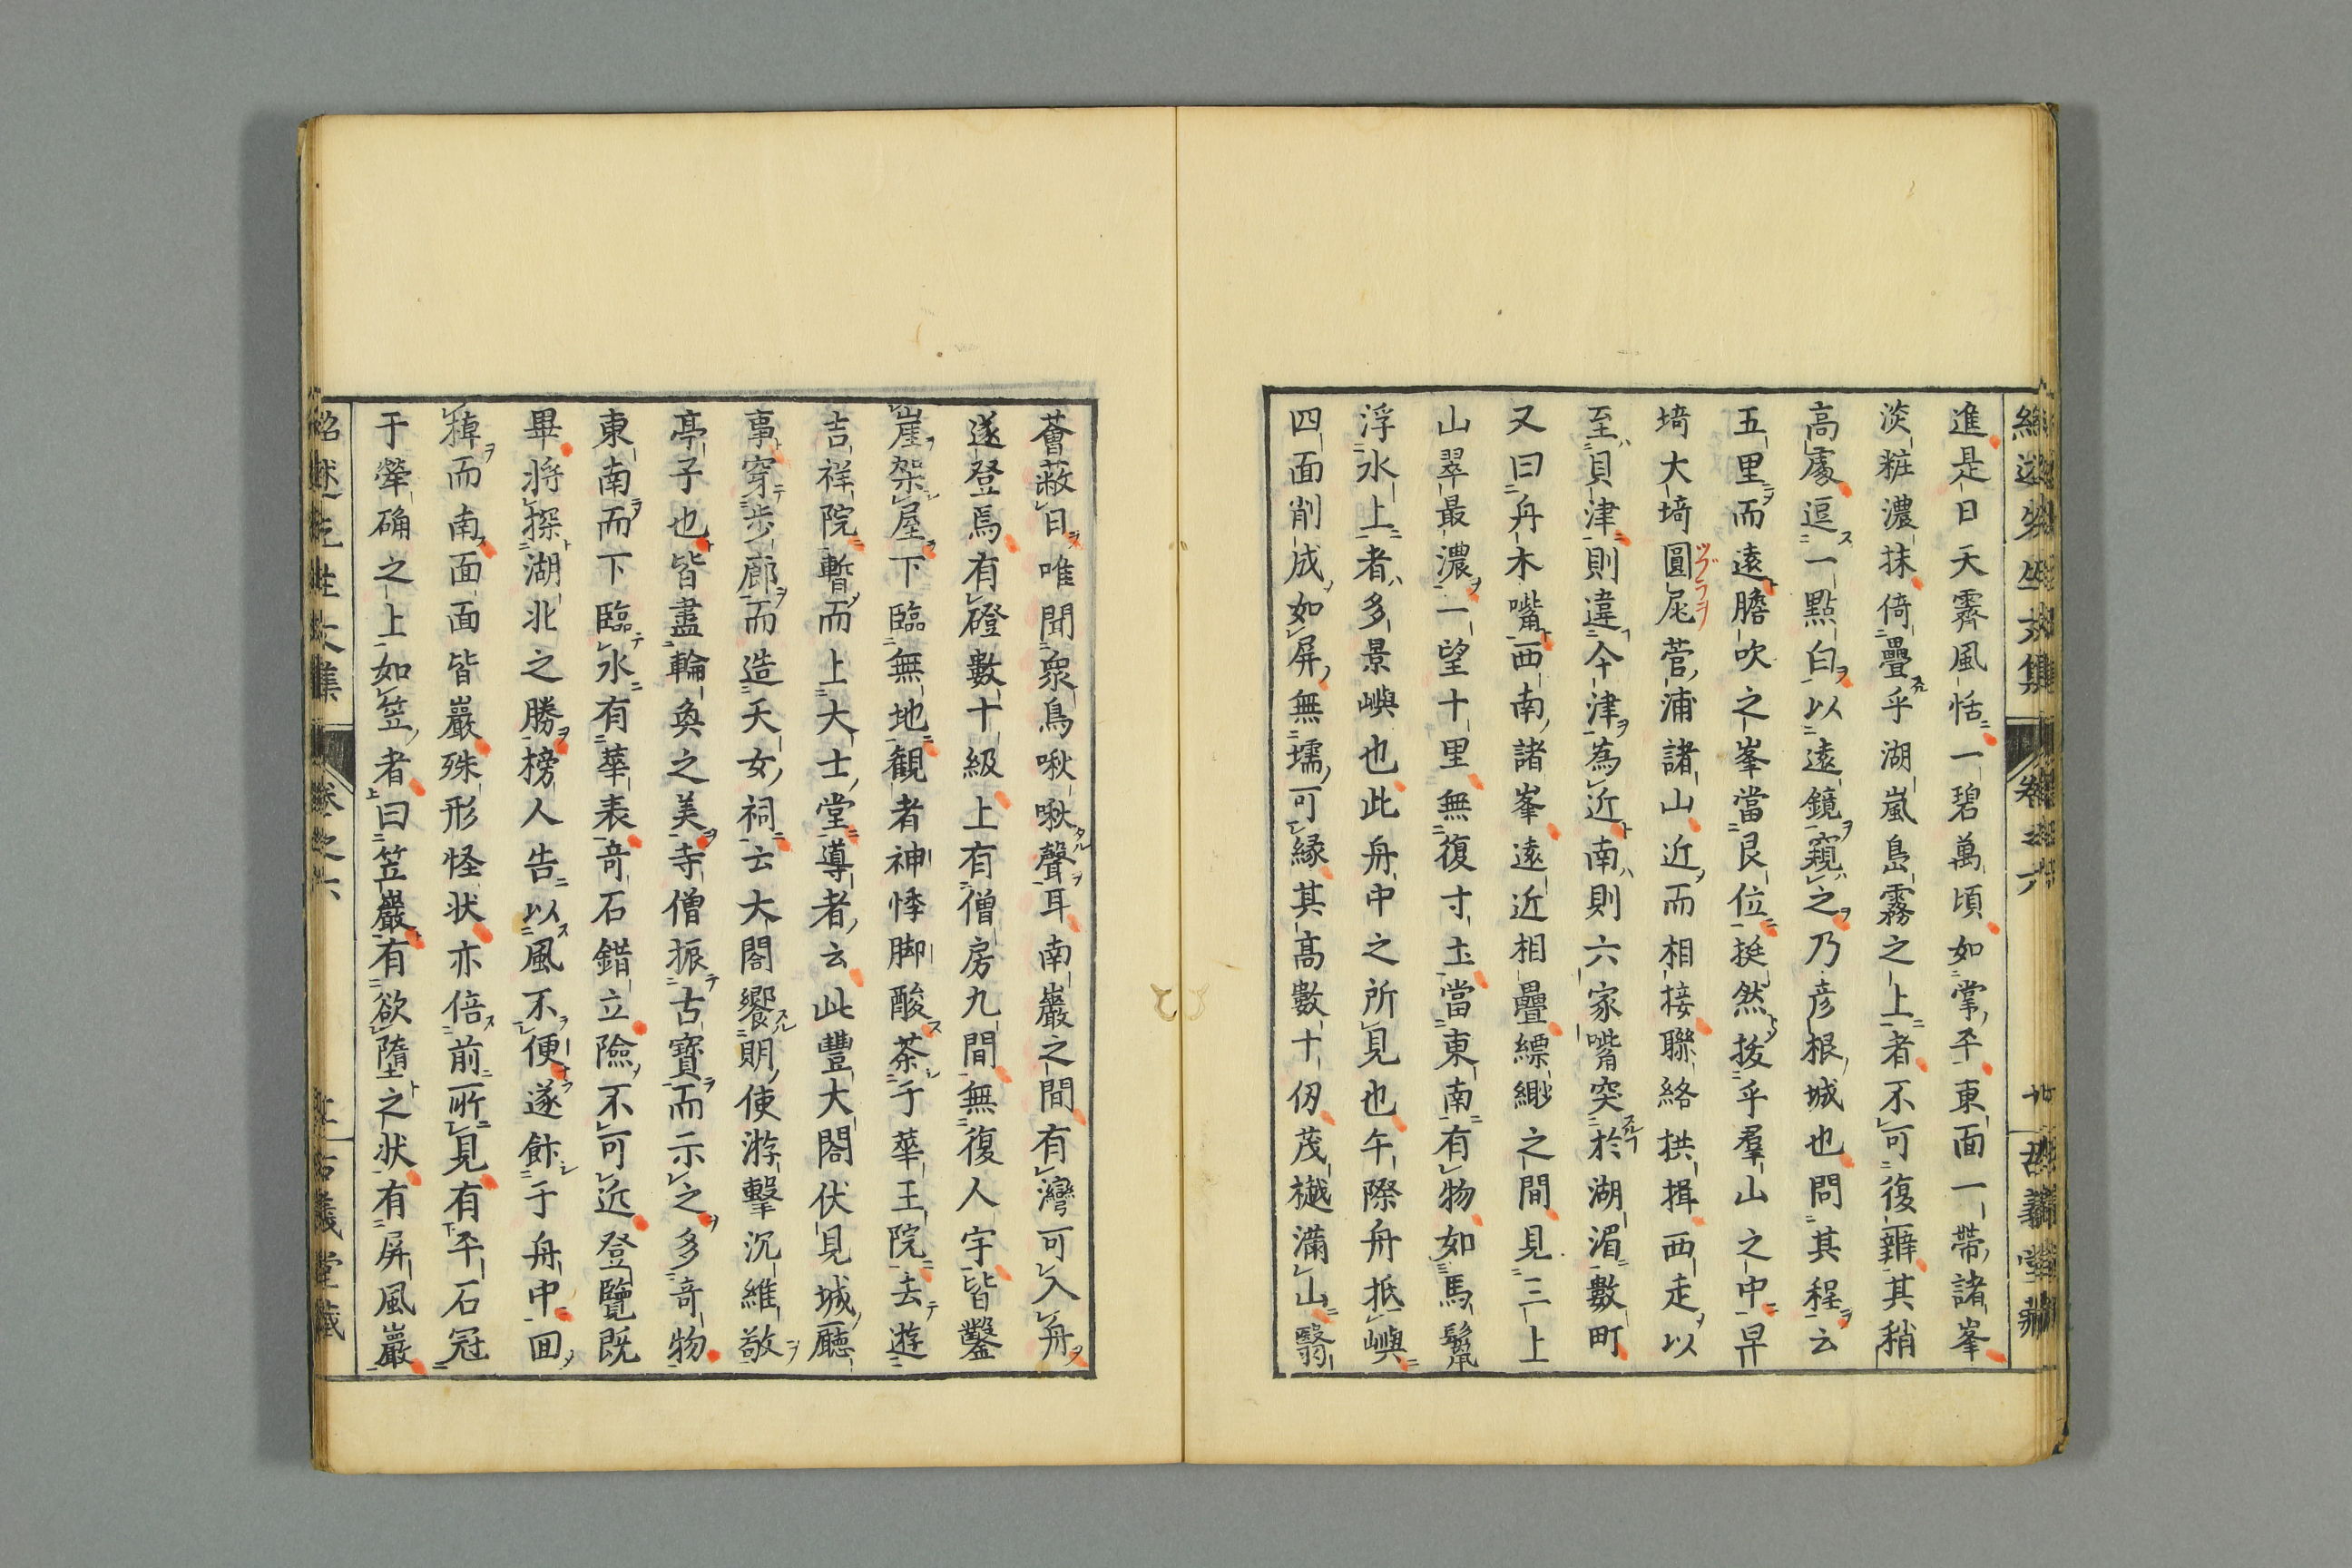 進是日天霽風恬一碧萬頃如掌平東面一帶諸峯
淡粧濃抹倚疊乎湖嵐島霧之上者不可復辨其稍
高處逗一點白以遠鏡窺之乃彦根城也問其程云
五里而遠膽吹之峯當艮位挺然拔乎羣山之中早
埼大埼圓尾菅浦諸山近而相接聯絡拱揖西走以
至貝津則違今津為近南則六家嘴突於湖湄數町
又曰舟木嘴西南諸峯遠近相疊縹緲之間見三上
山翠最濃一望十里無復寸土當東南有物如馬鬣
浮水上者多景嶼也此舟中之所見也午際舟抵嶼
四面削成如屏無壖可緣其高數十仞茂樾滿山翳
薈蔽日唯聞衆鳥啾啾聲耳南巖之間有灣可入舟
遂登焉有磴數十級上有僧房九間無復人宇皆鑿
崖架屋下臨無地観者神悸脚酸茶于華王院去遊
吉祥院暫而上大士堂導者云此豐大閤伏見城廳
事穿步廊而造天女祠云大閤饗明使游擊沉維敬
亭子也皆盡輪奐之美寺僧振古寶而示之多竒物
東南而下臨水有華表竒石錯立險不可近登覽既
畢將探湖北之勝榜人告以風不便遂飰于舟中回
棹而南面面皆巖殊形怪状亦倍前所見有平石冠
于犖确之上如笠者曰笠巖有欲墮之状有屏風巖
卷之六
古義堂藏